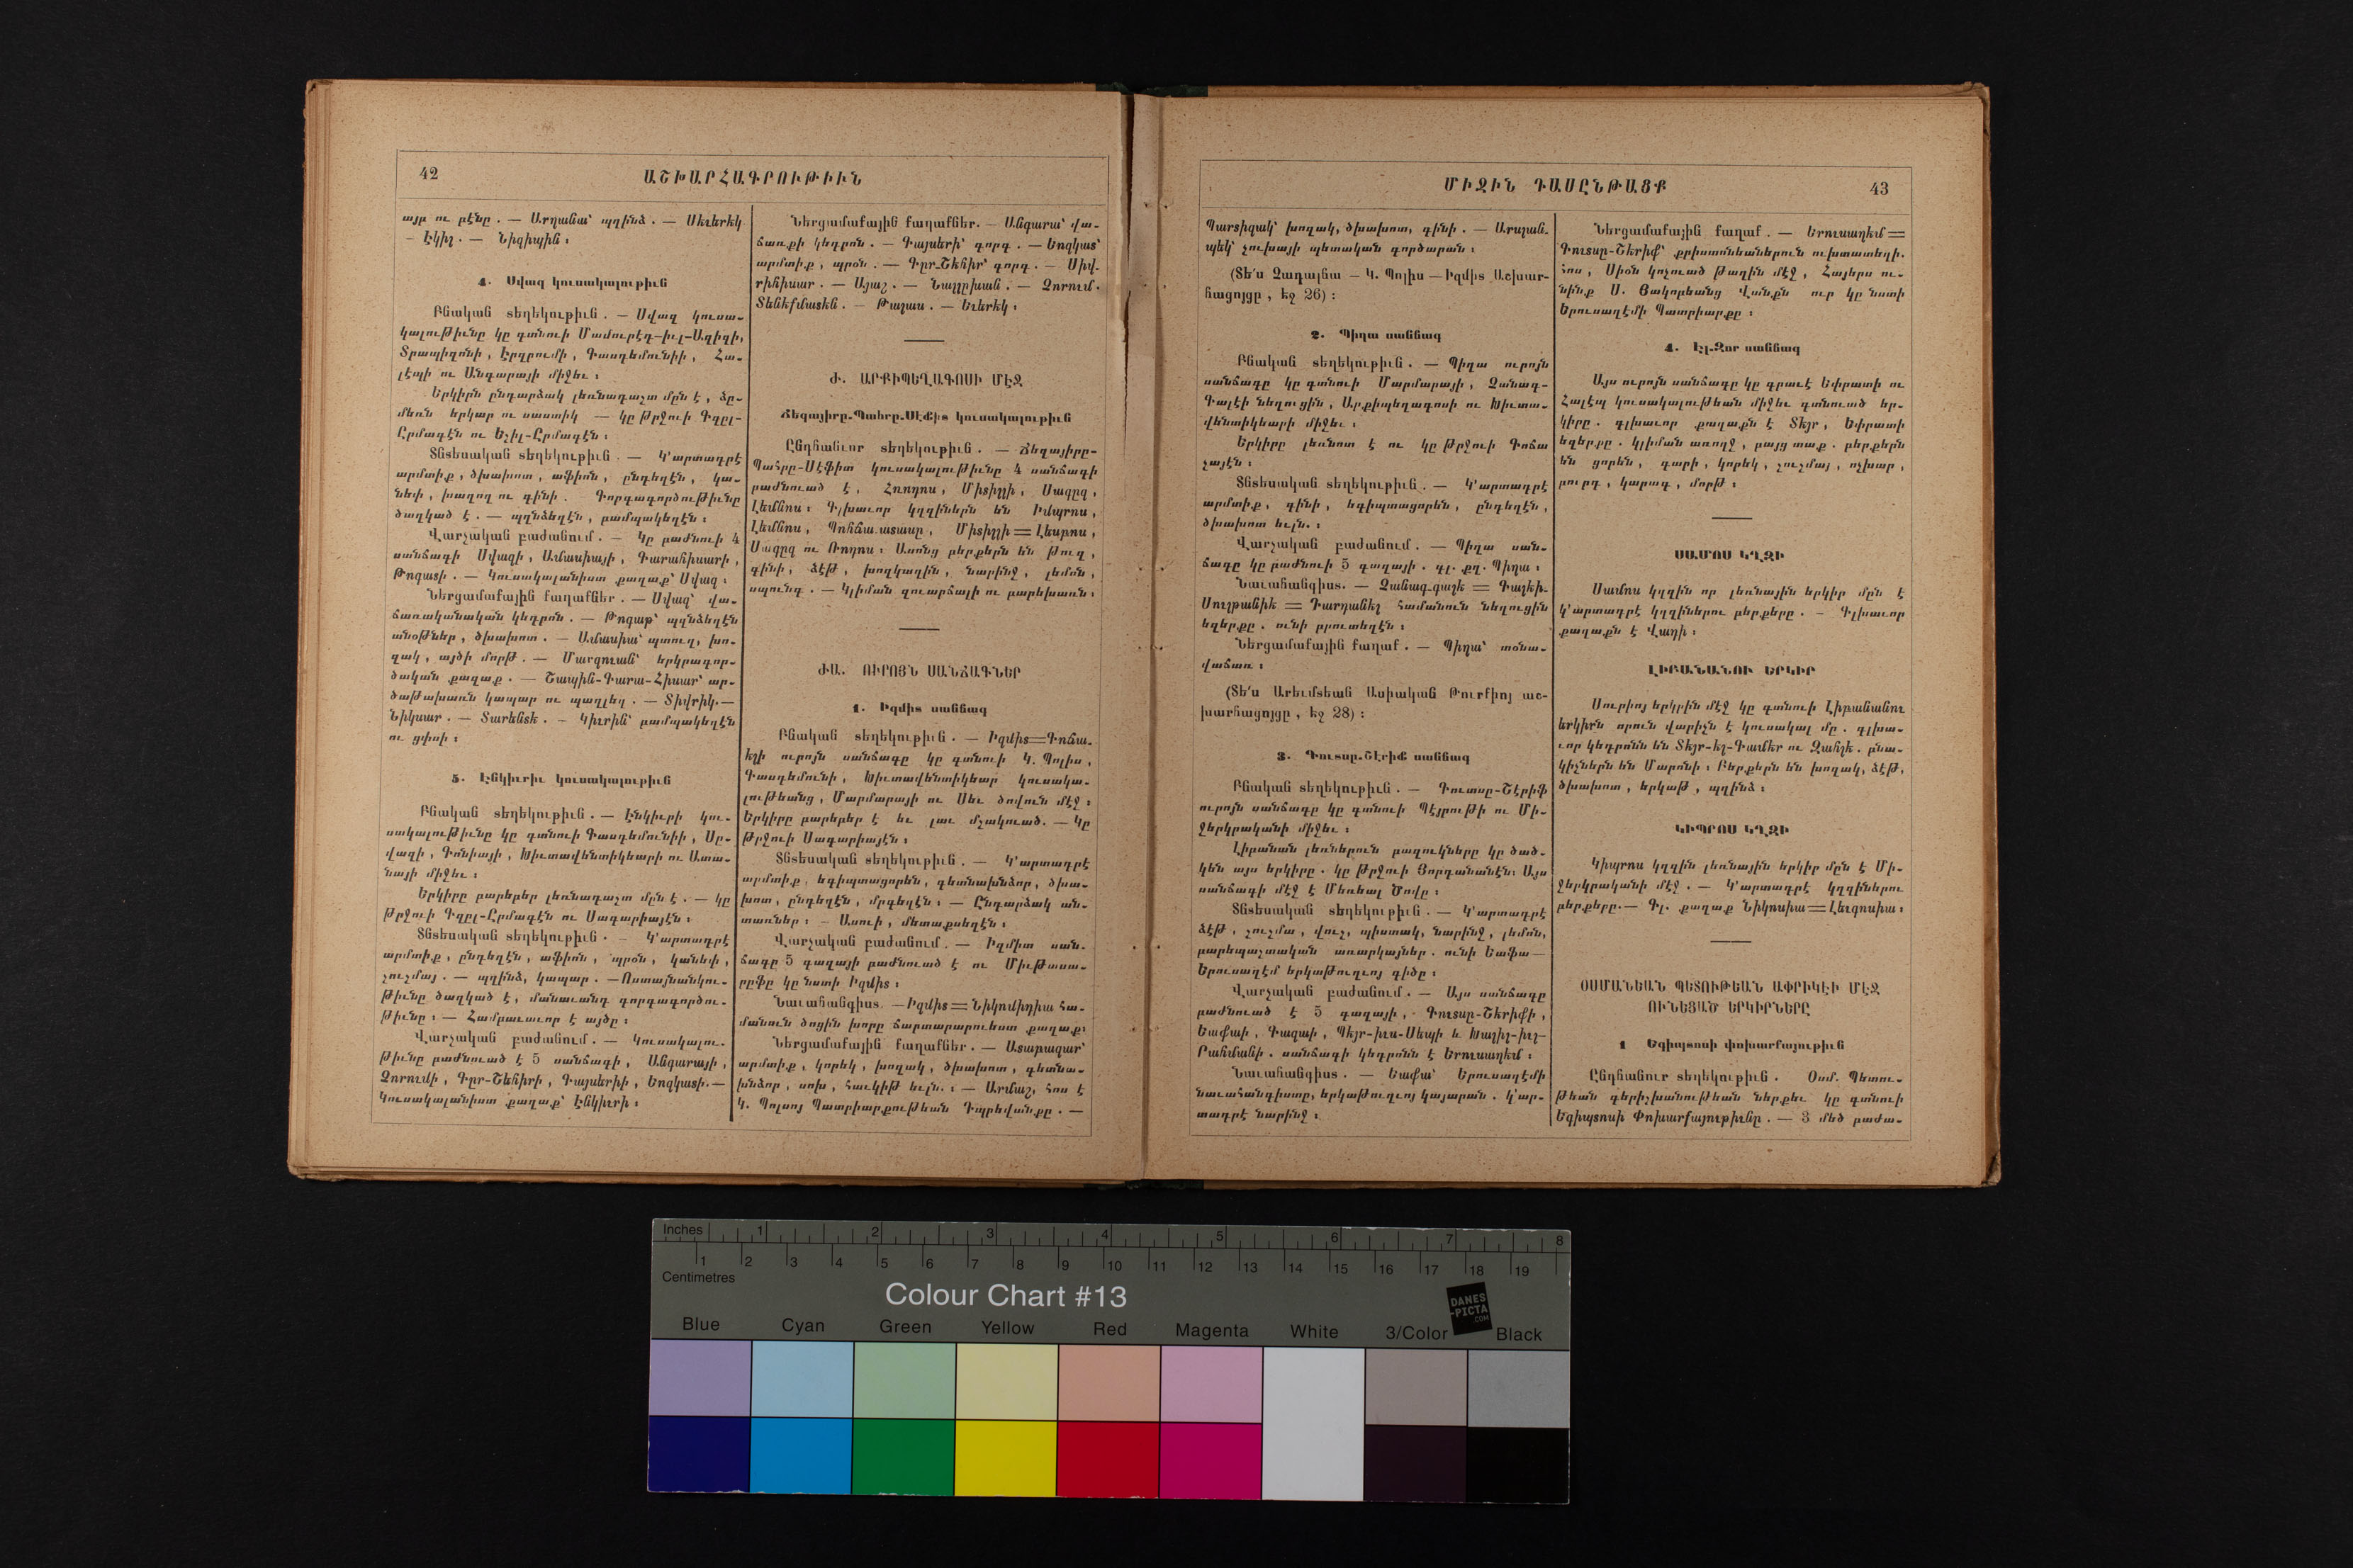 42
ԱՇԽԱՐՀԱԳՐՈՒԹԻՒՆ
այր ու բէնը. — Արղանա՝ պղինձ. — Սեւերեկ
– Էկիլ. — Նիզիպին։
4. Սվազ կուսակալութիւն
Բնական տեղեկութիւն. — Սվազ կուսա-
կալութիւնը կը գտնուի Մամուրէդ-իւլ-Ազիզի,
Տրապիզոնի, Էրզրումի, Գասդեմունիի, Հա-
լէպի ու Անգարայի միջեւ։
Երկիրն ընդարձակ լեռնադաշտ մըն է, ձը-
մեռն երկար ու սաստիկ — կը թրջուի Գզըլ-
Ըրմագէն ու Եշիլ-Ըրմագէն։
Տնտեսական տեղեկութիւն. — Կ'արտադրէ
արմտիք, ծխախոտ, աֆիոն, ընդեղէն, կա-
նեփ, խաղող ու գինի. – Գորգագործութիւնը
ծաղկած է. — պղնձեղէն, բամպակեղէն։
Վարչական բաժանում. — Կը բաժնուի 4
սանճագի Սվազի, Ամասիայի, Գարահիսարի,
Թոգատի. — Կուսակալանիստ քաղաք՝ Սվազ։
Ներցամաքային քաղաքներ. — Սվազ՝ վա-
ճառականական կեդրոն. — Թոգաթ՝ պղնձեղէն
անօթներ, ծխախոտ. — Ամասիա՝ պտուղ, խո-
զակ, այծի մորթ. — Մարզուան՝ երկրագոր-
ծական քաղաք. — Շապին-Գարա-Հիսար՝ ար-
ծաթախառն կապար ու պաղլեղ. — Տիվրիկ.—
Նիկսար. — Տարենտէ. – Կիւրին՝ բամպակեղէն
ու ցփսի։
5. Էնկիւրիւ կուսակալութիւն
Բնական տեղեկութիւն. — Էնկիւրի կու-
սակալութիւնը կը գտնուի Գասդեմունիի, Սը-
վազի, Գոնիայի, Խիւտավենտիկեարի ու Ատա-
նայի միջեւ։
Երկիրը բարեբեր լեռնադաշտ մըն է. — կը
թրջուի Գզըլ-Ըրմագէն ու Սագարիայէն։
Տնտեսական տեղեկութիւն. – Կ'արտադրէ
արմտիք, ընդեղէն, աֆիոն, պրօն, կանեփ,
շուշմայ. — պղինձ, կապար. —Ոստայնանկու-
թիւնը ծաղկած է, մանաւանդ գորգագործու-
թիւնը։ — Համբաւաւոր է այծը։
Վարչական բաժանում. — Կուսակալու-
թիւնը բաժնուած է 5 սանճագի, Անգարայի,
Չորումի, Գըր-Շեհիրի, Գայսերիի, Եոզկատի.—
Կուսակալանիստ քաղաք՝ Էնկիւրի։
Ներցամաքային քաղաքներ. — Անգարա՝ վա-
ճառքի կեդրոն. — Գայսերի՝ գորգ. — Եոզկատ՝
արմտիք, պրօն. — Գըր-Շեհիր՝ գորգ. — Սիվ-
րիհիսար. — Այաշ. — Նալլըխան. — Չորում.
Տենէքմատեն. — Թաշաս. — Եւերեկ։
Ժ. ԱՐՔԻՊԵՂԱԳՈՍԻ ՄԷՋ
Ճեզայիրը-Պահրը-Սէֆիտ կուսակալութիւն
Ընդհանուր տեղեկութիւն. — Ճեզայիրը-
Պահրը-Սէֆիտ կուսակալութիւնը 4 սանճագի
բաժնուած է, Հռոդոս, Միտիլլի, Սագըզ,
Լեմնոս։ Գլխաւոր կղզիներն են Իմպրոս,
Լեմնոս, Պոհճա ատասը, Միտիլլի = Լեսբոս,
Սագըզ ու Ռոդոս։ Ասոնց բերքերն են թուզ,
գինի, ձէթ, խոզկաղին, նարինջ, լեմոն,
սպունգ. — Կլիման զուարճալի ու բարեխառն։
ԺԱ. ՈՒՐՈՅՆ ՍԱՆՃԱԳՆԵՐ
1. Իզմիտ սանճագ
Բնական տեղեկութիւն. — Իզմիտ=Գոճա-
էլի ուրոյն սանճագը կը գտնուի Կ. Պոլիս,
Գասդեմունի, Խիւտավենտիկեար կուսակա-
լութեանց, Մարմարայի ու Սեւ ծովուն մէջ։
Երկիրը բարեբեր է եւ լաւ մշակուած. — Կը
թրջուի Սագարիայէն։
Տնտեսական տեղեկութիւն. — Կ'արտադրէ
արմտիք, եգիպտացորեն, գետնախնձոր, ծխա-
խոտ, ընդեղէն, մրգեղէն։ — Ընդարձակ ան-
տառներ։ – Ասուի, մետաքսեղէն։
Վարչական բաժանում. — Իզմիտ սան-
ճագը 5 գաղայի բաժնուած է ու Միւթասա-
րըֆը կը նստի Իզմիտ։
Նաւահանգիստ. — Իզմիտ = Նիկոմիդիա հա-
մանուն ծոցին խորը ճարտարարուեստ քաղաք։
Ներցամաքային քաղաքներ. — Ատաբազար՝
արմտիք, կորեկ, խոզակ, ծխախոտ, գետնա-
խնձոր, սոխ, հաւկիթ եւլն.։ — Արմաշ, հոս է
Կ. Պոլսոյ Պատրիարքութեան Դպրեվանքը. —
ՄԻՋԻՆ ԴԱՍԸՆԹԱՑՔ
43
Պարտիզակ՝ խոզակ, ծխախոտ, գինի. — Արսլան-
պէկ՝ չուխայի պետական գործարան։
(Տե՛ս Չադալճա — Կ. Պոլիս — Իզմիտ Աշխար-
հացոյցը, էջ 26)։
2. Պիղա սանճագ
Բնական տեղեկութիւն. — Պիղա ուրոյն
սանճագը կը գտնուի Մարմարայի, Չանագ-
Գալէի նեղուցին, Արքիպեղագոսի ու Խիւտա-
վենտիկեարի միջեւ։
Երկիրը լեռնոտ է ու կը թրջուի Գոճա
չայէն։
Տնտեսական տեղեկութիւն. — Կ'արտադրէ
արմտիք, գինի, եգիպտացորեն, ընդեղէն,
ծխախոտ եւլն.։
Վարչական բաժանում. — Պիղա սան-
ճագը կը բաժնուի 5 գաղայի. գլ. քղ. Պիղա։
Նաւահանգիստ. — Չանագ-գալէ = Գալէի-
Սուլթանիէ = Դարդանէլ համանուն նեղուցին
եզերքը. ունի բրուտեղէն։
Ներցամաքային քաղաք. — Պիղա՝ տօնա-
վաճառ։
(Տե՛ս Արեւմտեան Ասիական Թուրքիոյ աշ-
խարհացոյցը, էջ 28)։
3. Գուտսը-Շէրիֆ սանճագ
Բնական տեղեկութիւն. — Գուտսը-Շէրիֆ
ուրոյն սանճագը կը գտնուի Պէյրութի ու Մի-
ջերկրականի միջեւ։
Լիբանան լեռներուն բազուկները կը ծած-
կեն այս երկիրը. կը թրջուի Յորդանանէն։ Այս
սանճագի մէջ է Մեռեալ Ծովը։
Տնտեսական տեղեկութիւն. — Կ'արտադրէ
ձէթ, շուշմա, վուշ, պիստակ, նարինջ, լեմոն,
բարեպաշտական առարկայներ. ունի Եաֆա—
Երուսաղէմ երկաթուղւոյ գիծը։
Վարչական բաժանում. — Այս սանճագը
բաժնուած է 5 գաղայի, Գուտսը-Շերիֆի,
Եաֆաի, Գազաի, Պէյր-իւս-Սեպի և Խալիլ-իւլ-
Րահմանի. սանճագի կեդրոնն է Երուսաղեմ։
Նաւահանգիստ. — Եաֆա՝ Երուսաղէմի
նաւահանգիստը, երկաթուղւոյ կայարան. կ'ար-
տադրէ նարինջ։
Ներցամաքային քաղաք. — Երուսաղեմ =
Գուտսը-Շերիֆ՝ քրիստոնեաներուն ուխտատեղի.
հոս, Սիօն կոչուած թաղին մէջ, Հայերս ու-
նինք Ս. Յակոբեանց Վանքն ուր կը նստի
Երուսաղէմի Պատրիարքը։
4. Էլ-Զօր սանճագ
Այս ուրոյն սանճագը կը գրաւէ Եփրատի ու
Հալէպ կուսակալութեան միջեւ գտնուած եր-
կիրը. գլխաւոր քաղաքն է Տէյր, Եփրատի
եզերքը. կլիման առողջ, բայց տաք. բերքերն
են ցորեն, գարի, կորեկ, շուշմայ, ոչխար,
բուրդ, կարագ, մորթ։
ՍԱՄՈՍ ԿՂԶԻ
Սամոս կղզին որ լեռնային երկիր մըն է
կ'արտադրէ կղզիներու բերքերը. – Գլխաւոր
քաղաքն է Վադի։
ԼԻԲԱՆԱՆՈՒ ԵՐԿԻՐ
Սուրիոյ երկրին մէջ կը գտնուի Լիբանանու
երկիրն որուն վարիչն է կուսակալ մը. գլխա-
ւոր կեդրոնն են Տէյր-էլ-Գամեր ու Զահլէ. բնա-
կիչներն են Մարոնի։ Բերքերն են խոզակ, ձէթ,
ծխախոտ, երկաթ, պղինձ։
ԿԻՊՐՈՍ ԿՂԶԻ
Կիպրոս կղզին լեռնային երկիր մըն է Մի-
ջերկրականի մէջ. — Կ'արտադրէ կղզիներու
բերքերը.— Գլ. քաղաք Նիկոսիա=Լեւգոսիա։
ՕՍՄԱՆԵԱՆ ՊԵՏՈՒԹԵԱՆ ԱՓՐԻԿԷԻ ՄԷՋ
ՈՒՆԵՑԱԾ ԵՐԿԻՐՆԵՐԸ
1 Եգիպտոսի փոխարքայութիւն
Ընդհանուր տեղեկութիւն. Օսմ. Պետու-
թեան գերիշխանութեան ներքեւ կը գտնուի
Եգիպտոսի Փոխարքայութիւնը. — 3 մեծ բաժա-
Inches 1 2 3 4 5 6 7 8
1 2 3 4 5 6 7 8 9 10 11 12 13 14 15 16 17 18 19
Centimetres
Colour Chart #13
DANES
-PICTA
.COM
Blue Cyan Green Yellow Red Magenta White 3/Color Black